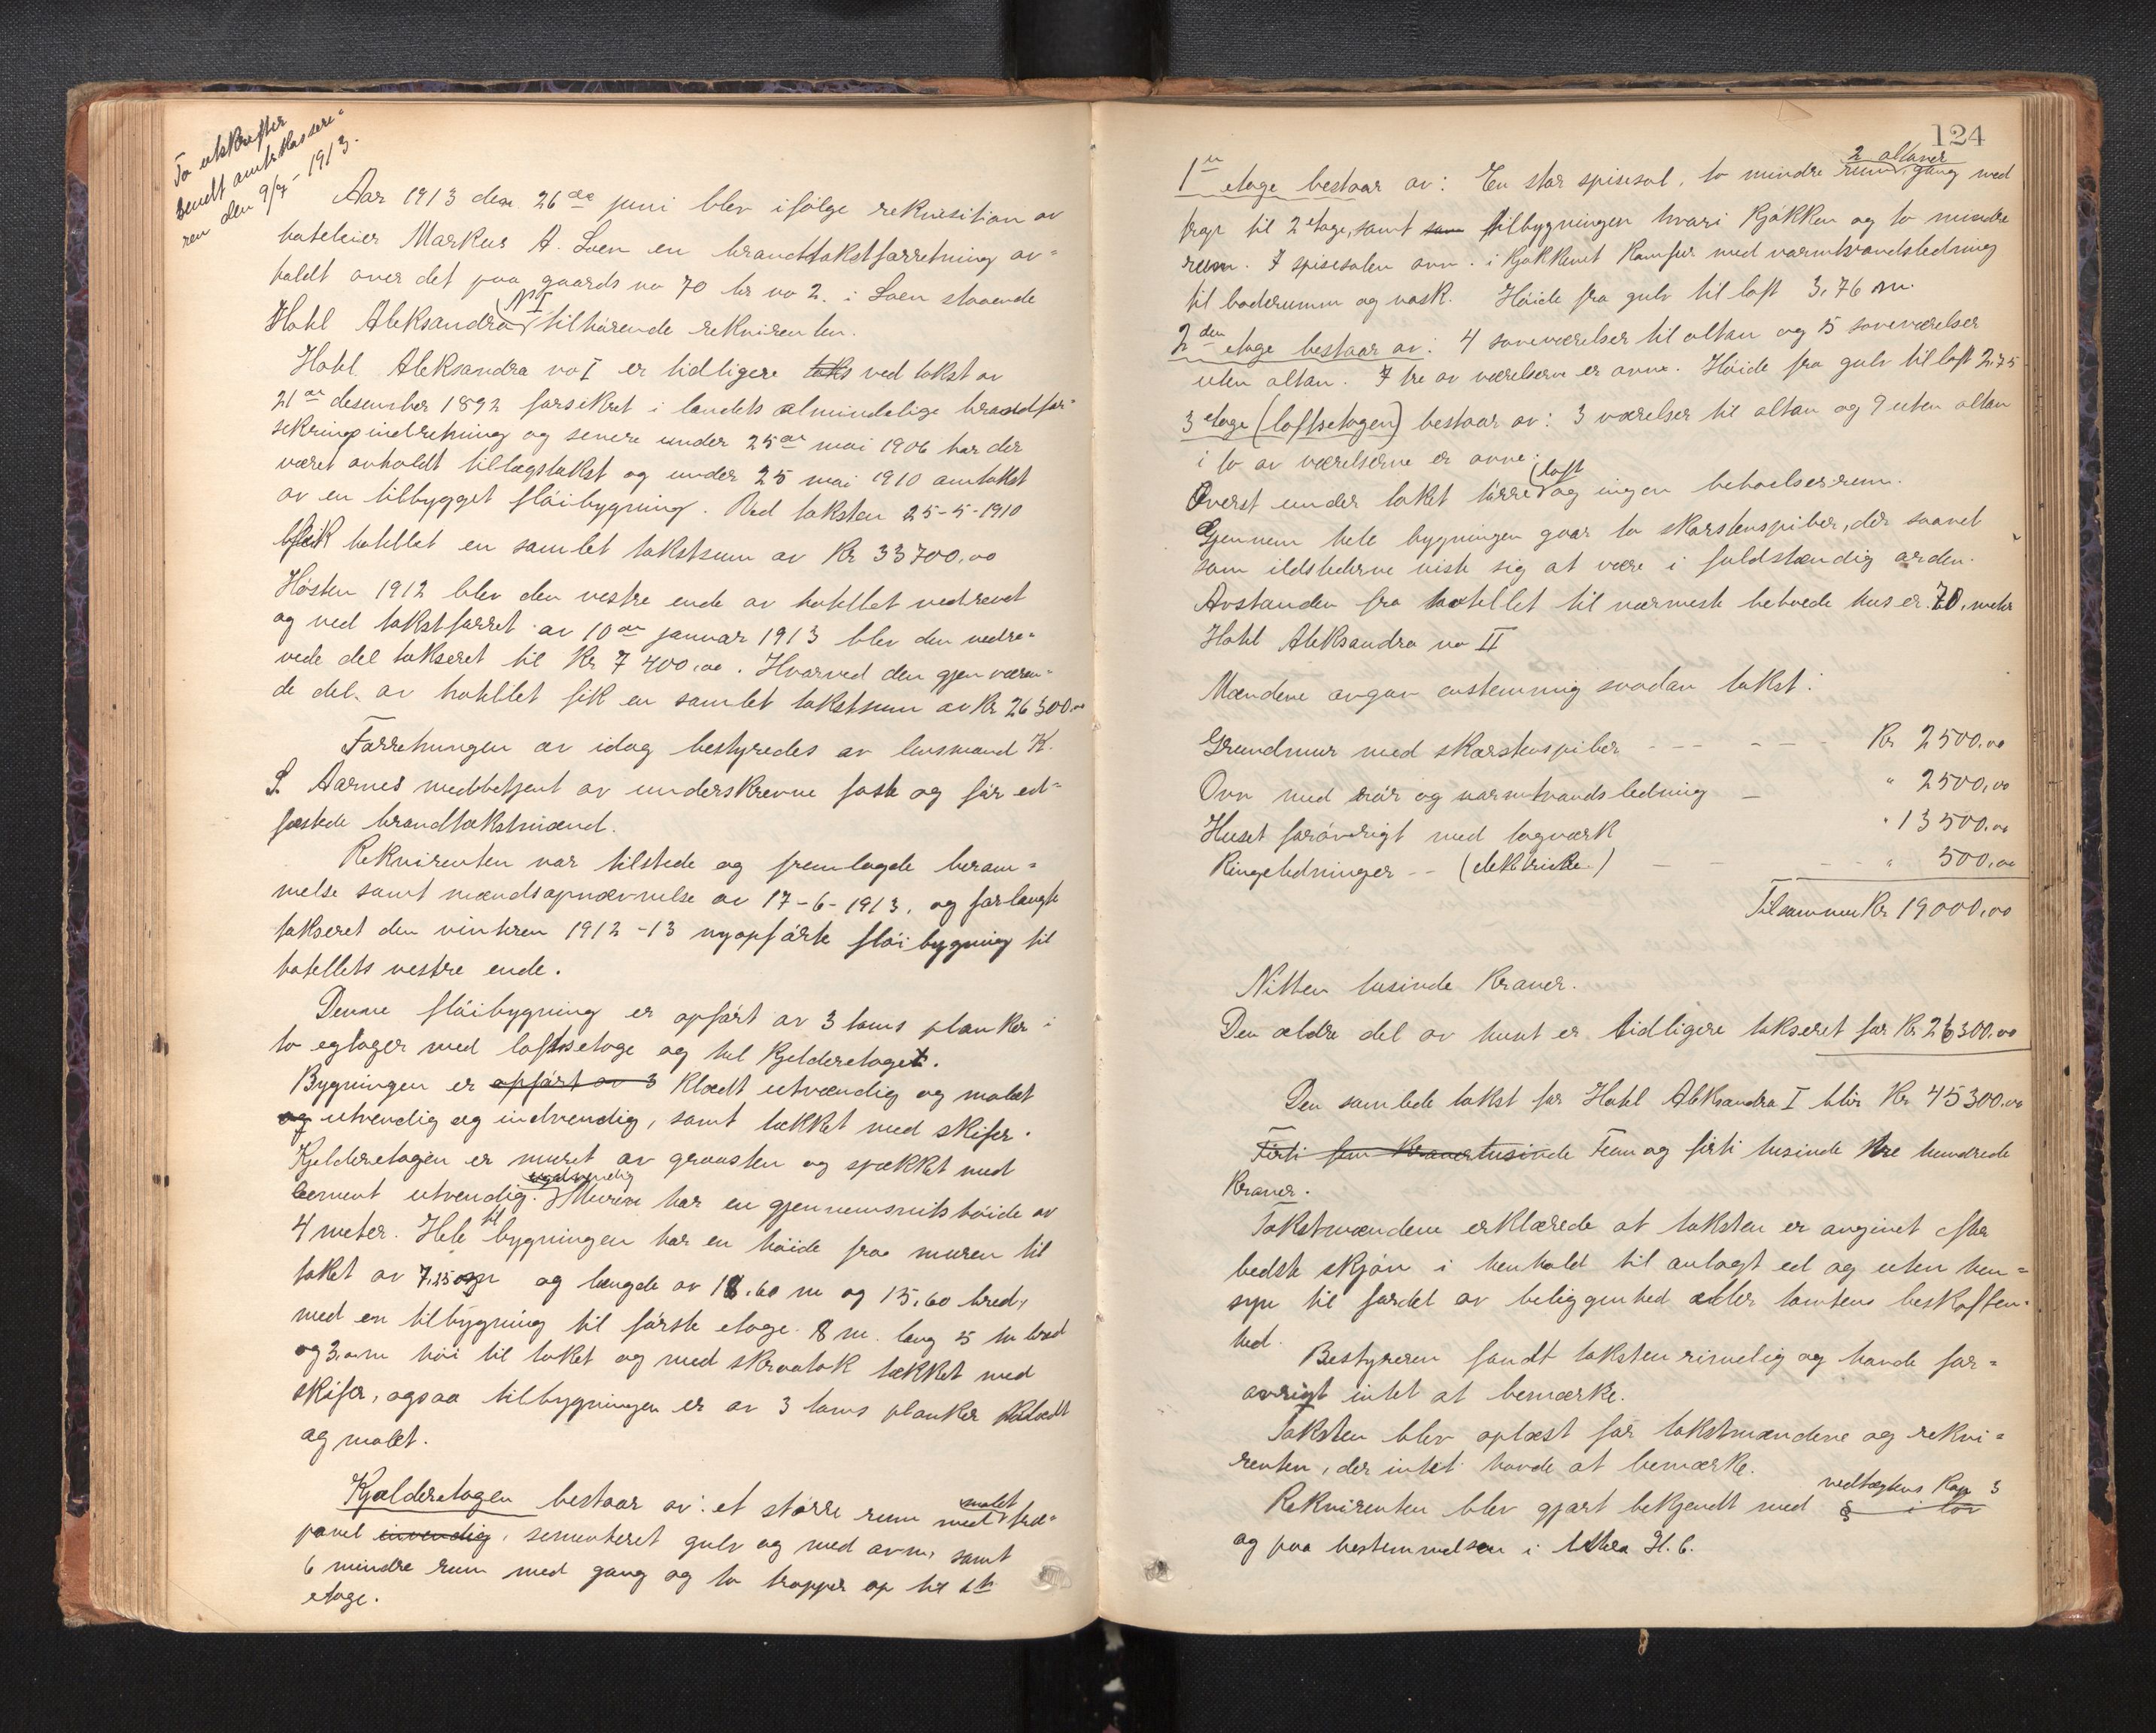 To utskrifter
sendt amtskassere-
ren den 9/7 - 1913.
Aar 1913 den 26de juni blev ifølge rekvisition av
hoteleier Markus A. Loen en brandtakstforretning av-
holdt over det paa gaards no 70 br no 2. i Loen staaende
Hotel Aleksandra No I tilhørende rekvirenten.
Hotel Aleksandra no I er tidligere taks ved takst av
21de desember 1892 forsikret i landets almindelige brandfor-
sikringsindretning og senere under 25de mai 1906 har der
været avholdt tillægstakst og under 25 mai 1910 omtakst
av en tilbygget fløibygning. Ved taksten 25-5-1910
fik hotellet en samlet takstsum av Kr 33700,00
Høsten 1912 blev den vestre ende av hotellet nedrevet
og ved takstforret. av 10de januar 1913 blev den nedre-
vede del takseret til Kr 7400,00. Hvorved den gjenværen-
de del av hotellet fik en samlet takstsum av Kr 26300,00
Forretningen av idag bestyredes av lensmand K.
S. Aarnes medbetjent av underskrevne faste og før ed-
fæstede brandtakstmænd.
Rekvirenten var tilstede og fremlagde beram-
melse samt mændsopnævnelse av 17-6-1913, og forlangte
takseret den vinteren 1912-13 nyopførte fløibygning til
hotellets vestre ende.
Denne fløibygning er opført av 3 toms planker i
to egtager med loftsetage og hel kjelderetaget.
Bygningen er opført av 3 klædt utvændig og malet
og utvendig og indvendig, samt tækket med skifer.
Kjelderetagen er muret av graasten og spækket med
cement utvendig. Muren har en gjennemsnits høide av
4 meter. Hele tilbygningen har en høide fra muren til
taket av 7,25 m og længde av 18,60 m og 15,60 bred,
med en tilbygning til første etage. 8 m. lang 5 m bred
og 3,0 m høi til taket og med skraatak tækket med
skifer, ogsaa tilbygningen er av 3 toms planker klædt
og malet.
Kjælderetagen bestaar av: et større rum med malet træ-
panel invendig, sementeret gulv og med ovn, samt
6 mindre rum med gang og to trapper op til 1ste
etage.
124
1ste etage bestaar av: En stor spisesal, to mindre rum, 2 altaner gang med
trap til 2 etage, samt som tilbygningen hvori kjøkken og to mindre
rum. I spisesalen ovn. i kjøkkenet komfur med varmtvandsledning
til baderummet og vask. Høide fra gulv til loft 3,76 m.
2den etage bestaar av: 4 soveværelser til altan og 5 soveværelser
uten altan. I tre av værelserne er ovne. Høide fra gulv til loft 2,75
3 etage (loftsetagen) bestaar av: 3 værelser til altan og 9 uten altan
i to av værelserne er ovne.
Øverst under taket tørreloft og ingen beboelsesrum.
Gjennem hele bygningen gaar to skorstenspiber, der saavel
som ildstederne viste sig at være i fuldstændig orden.
Avstanden fra hotellet til nærmeste bebodde hus er 70, meter
Hotel Aleksandra no II
Mændene avgav enstemmig saadan takst:
Grundmur med skorstenspiber - - - - - - Kr 2500,00
Ovn med rør og varmtvandsledning - " 2500,00
Huset forøvrigt med tagværk " 13500,00
Ringeledninger - - (elektriske) - - - - " 500,00
Tilsammen Kr 19000,00
Nitten tusinde kroner.
Den ældre del av huset er tidligere takseret for Kr 26300,00
Den samlede takst for Hotel Aleksandra I blir Kr 45300,00
Førti fem kroner tusinde Fem og førti tusinde tre hundrede
kroner.
Takstmændene erklærede at taksten er avgivet efter
bedste skjøn i henhold til avlagt ed og uten hen-
syn til fordel av beliggenhed eller tomtens beskaffen-
hed.
Bestyreren fandt taksten rimelig og havde for-
øvrigt intet at bemærke.
Taksten blev oplæst for takstmændene og rekvi-
renten, der intet havde at bemærke.
Rekvirenten blev gjort bekjendt med vedtægtens Kap 3 § i lov
og paa bestemmelsen i littra H. 6.